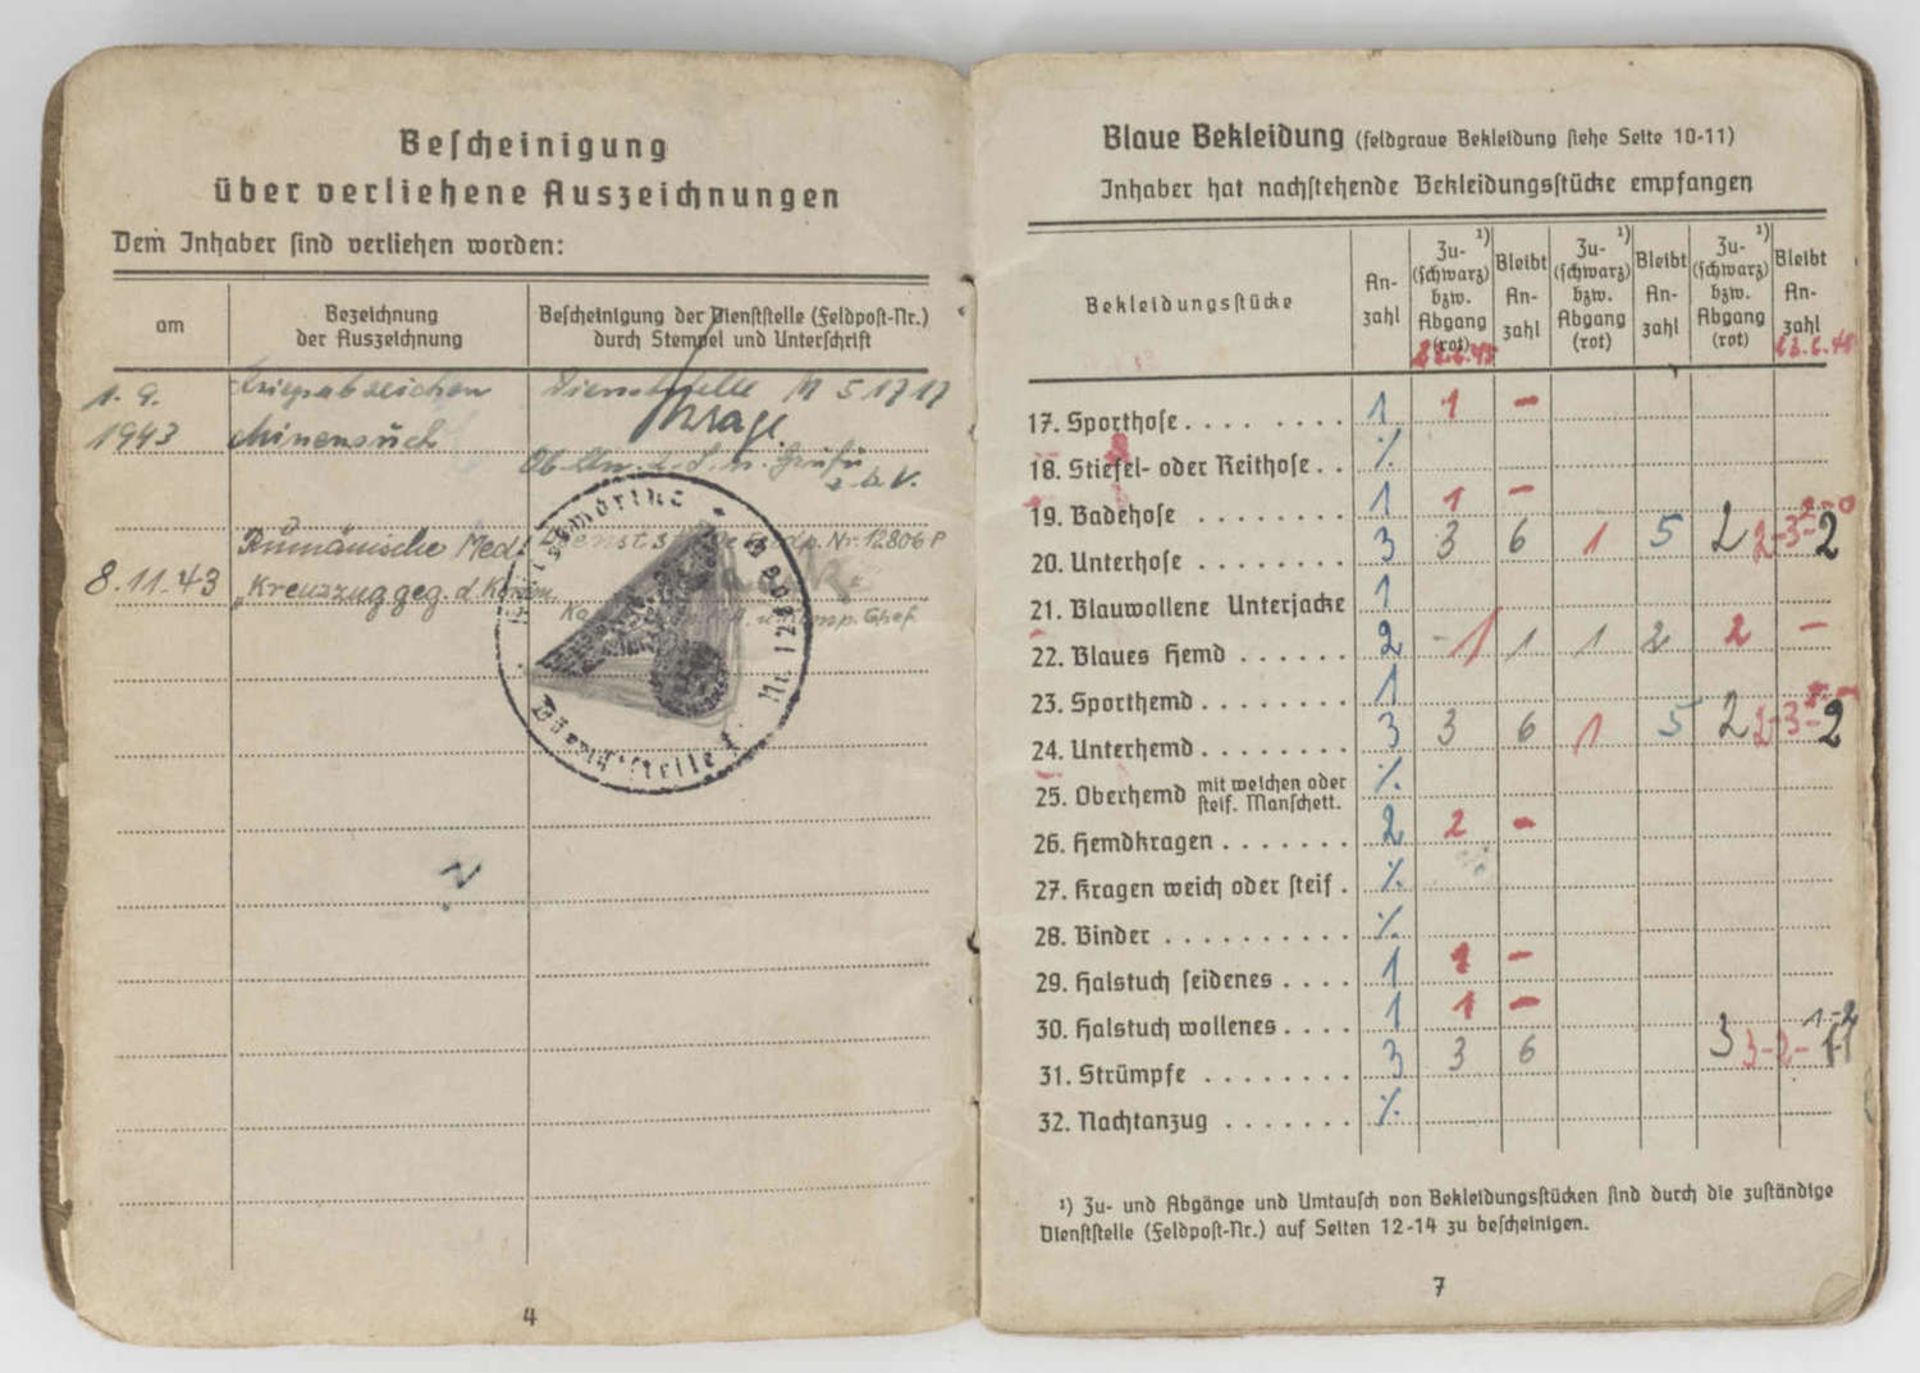 Bescheinigung
über verliehene Auszeichnungen
Dem Inhaber sind verliehen worden:
am
Bezeichnung
der Auszeichnung
Bescheinigung der Dienststelle (Feldpost-Nr.)
durch Stempel und Unterschrift
1. 9. Kriegsabzeichen Dienststelle M 51717
1943 Minensuch
z. b. V.
Rumänische Med. Dienststelle Feldp. Nr. 12806 P
8.11.43 „Kreuzzug geg. d. Komm.
Komp. Chef
Kriegsmarine
Dienststelle
Nr. 128
4
Blaue Bekleidung (feldgraue Bekleidung siehe Seite 10-11)
Inhaber hat nachstehende Bekleidungsstücke empfangen
Bekleidungsstücke
An-
zahl
Zu- ¹)
(schwarz)
bzw.
Abgang
(rot)
Bleibt
An-
zahl
Zu- ¹)
(schwarz)
bzw.
Abgang
(rot)
Bleibt
An-
zahl
Zu- ¹)
(schwarz)
bzw.
Abgang
(rot)
Bleibt
An-
zahl
17. Sporthose . . . . . . . . 1 1 -
18. Stiefel- oder Reithose . . %
19. Badehose . . . . . . . . 1 1 -
20. Unterhose . . . . . . . . 3 3 6 1 5 2 2-3- 2
21. Blauwollene Unterjacke 1
22. Blaues Hemd . . . . . . 2 -1 1 1 2 2 -
23. Sporthemd . . . . . . . . 1
24. Unterhemd . . . . . . . . 3 3 6 1 5 2 2-3- 2
25. Oberhemd mit weichen oder steif. Manschett. %
26. Hemdkragen . . . . . . . 2 2 -
27. Kragen weich oder steif . %
28. Binder . . . . . . . . . . %
29. Halstuch seidenes . . . . 1 1 -
30. Halstuch wollenes . . . . 1 1 -
31. Strümpfe . . . . . . . . 3 3 6 3 3-2-
32. Nachtanzug . . . . . . . %
¹) Zu- und Abgänge und Umtausch von Bekleidungsstücken sind durch die zuständige
Dienststelle (Feldpost-Nr.) auf Seiten 12-14 zu bescheinigen.
7